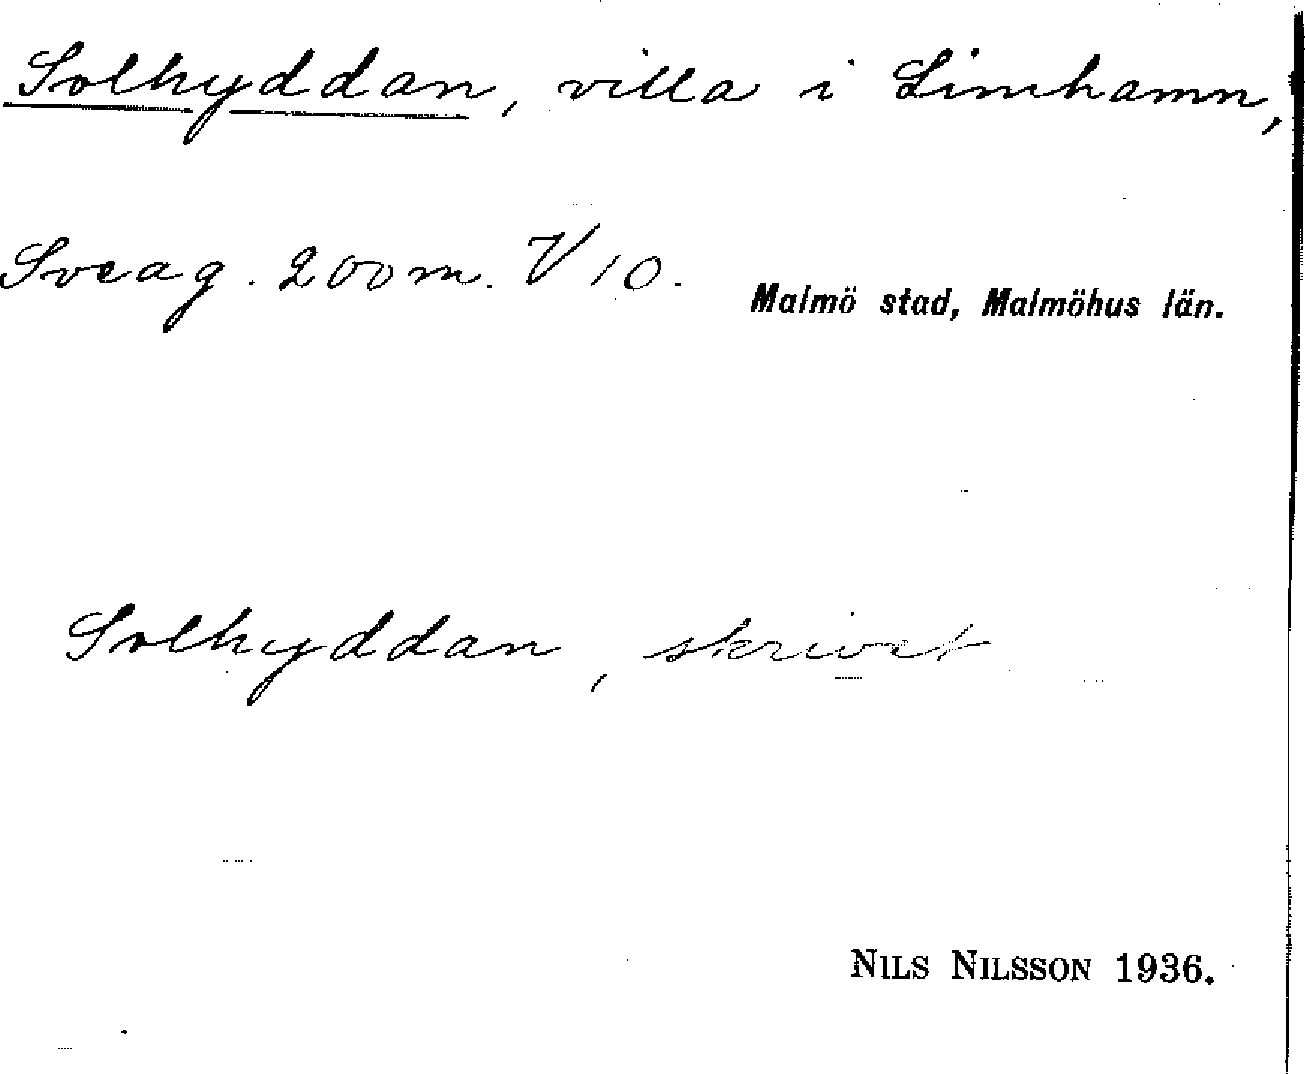 Solhyddan, villa i Limhamn,
Sveag. 200 m. V/10.
Malmö stad, Malmöhus län.
Solhyddan, skrivet
NILS NILSSON 1936.